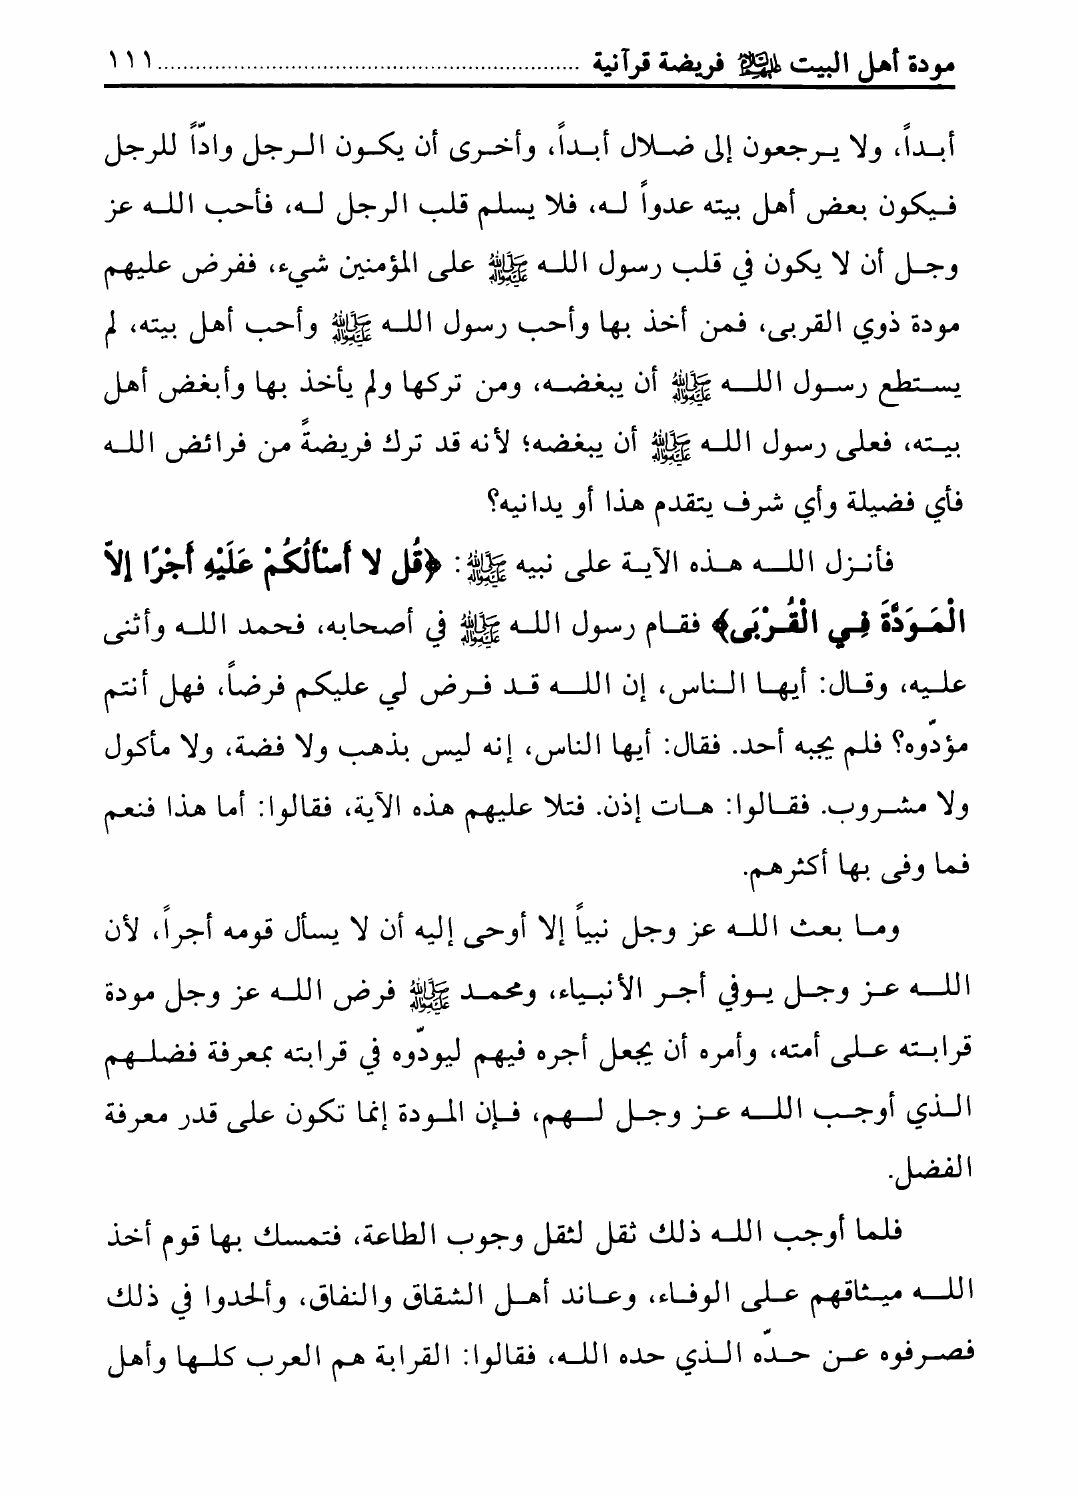 مودة أهل البيت عليهم السلام فريضة قرآنية ............................................................ ١١١
أبداً، ولا يرجعون إلى ضلال أبداً، وأخرى أن يكون الرجل وادّاً للرجل
فيكون بعض أهل بيته عدواً له، فلا يسلم قلب الرجل له، فأحب الله عز
وجل أن لا يكون في قلب رسول الله ﷺ على المؤمنين شيء، ففرض عليهم
مودة ذوي القربى، فمن أخذ بها وأحب رسول الله ﷺ وأحب أهل بيته، لم
يستطع رسول الله ﷺ أن يبغضه، ومن تركها ولم يأخذ بها وأبغض أهل
بيته، فعلى رسول الله ﷺ أن يبغضه؛ لأنه قد ترك فريضةً من فرائض الله
فأي فضيلة وأي شرف يتقدم هذا أو يدانيه؟
فأنزل الله هذه الآية على نبيه ﷺ: ﴿قُل لا أَسْأَلُكُمْ عَلَيْهِ أَجْرًا إلاّ
الْمَوَدَّةَ فِي الْقُرْبَى﴾ فقام رسول الله ﷺ في أصحابه، فحمد الله وأثنى
عليه، وقال: أيها الناس، إن الله قد فرض لي عليكم فرضاً، فهل أنتم
مؤدّوه؟ فلم يجبه أحد. فقال: أيها الناس، إنه ليس بذهب ولا فضة، ولا مأكول
ولا مشروب. فقالوا: هات إذن. فتلا عليهم هذه الآية، فقالوا: أما هذا فنعم
فما وفى بها أكثرهم.
وما بعث الله عز وجل نبياً إلا أوحى إليه أن لا يسأل قومه أجراً، لأن
الله عز وجل يوفي أجر الأنبياء، ومحمد ﷺ فرض الله عز وجل مودة
قرابته على أمته، وأمره أن يجعل أجره فيهم ليودّوه في قرابته بمعرفة فضلهم
الذي أوجب الله عز وجل لهم، فإن المودة إنما تكون على قدر معرفة
الفضل.
فلما أوجب الله ذلك ثقل لثقل وجوب الطاعة، فتمسك بها قوم أخذ
الله ميثاقهم على الوفاء، وعاند أهل الشقاق والنفاق، وألحدوا في ذلك
فصرفوه عن حدّه الذي حده الله، فقالوا: القرابة هم العرب كلها وأهل